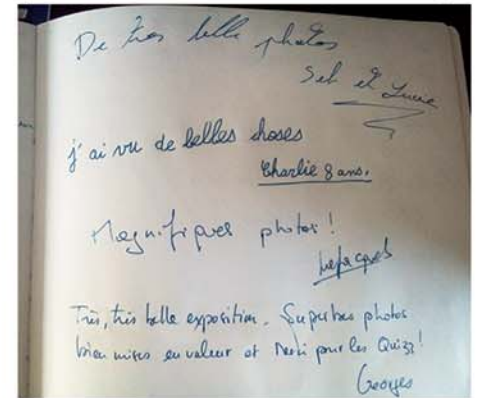 De très belle photos
Seb et Lucie
j'ai vu de belles choses
Charlie 8 ans.
Magnifiques photos!
Très, très belle exposition. Superbes photos
bien mises en valeur et Merci pour les Quizz!
Georges